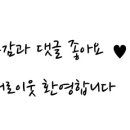 감과 댓글 좋아요 ♥
로이웃 환영합니다